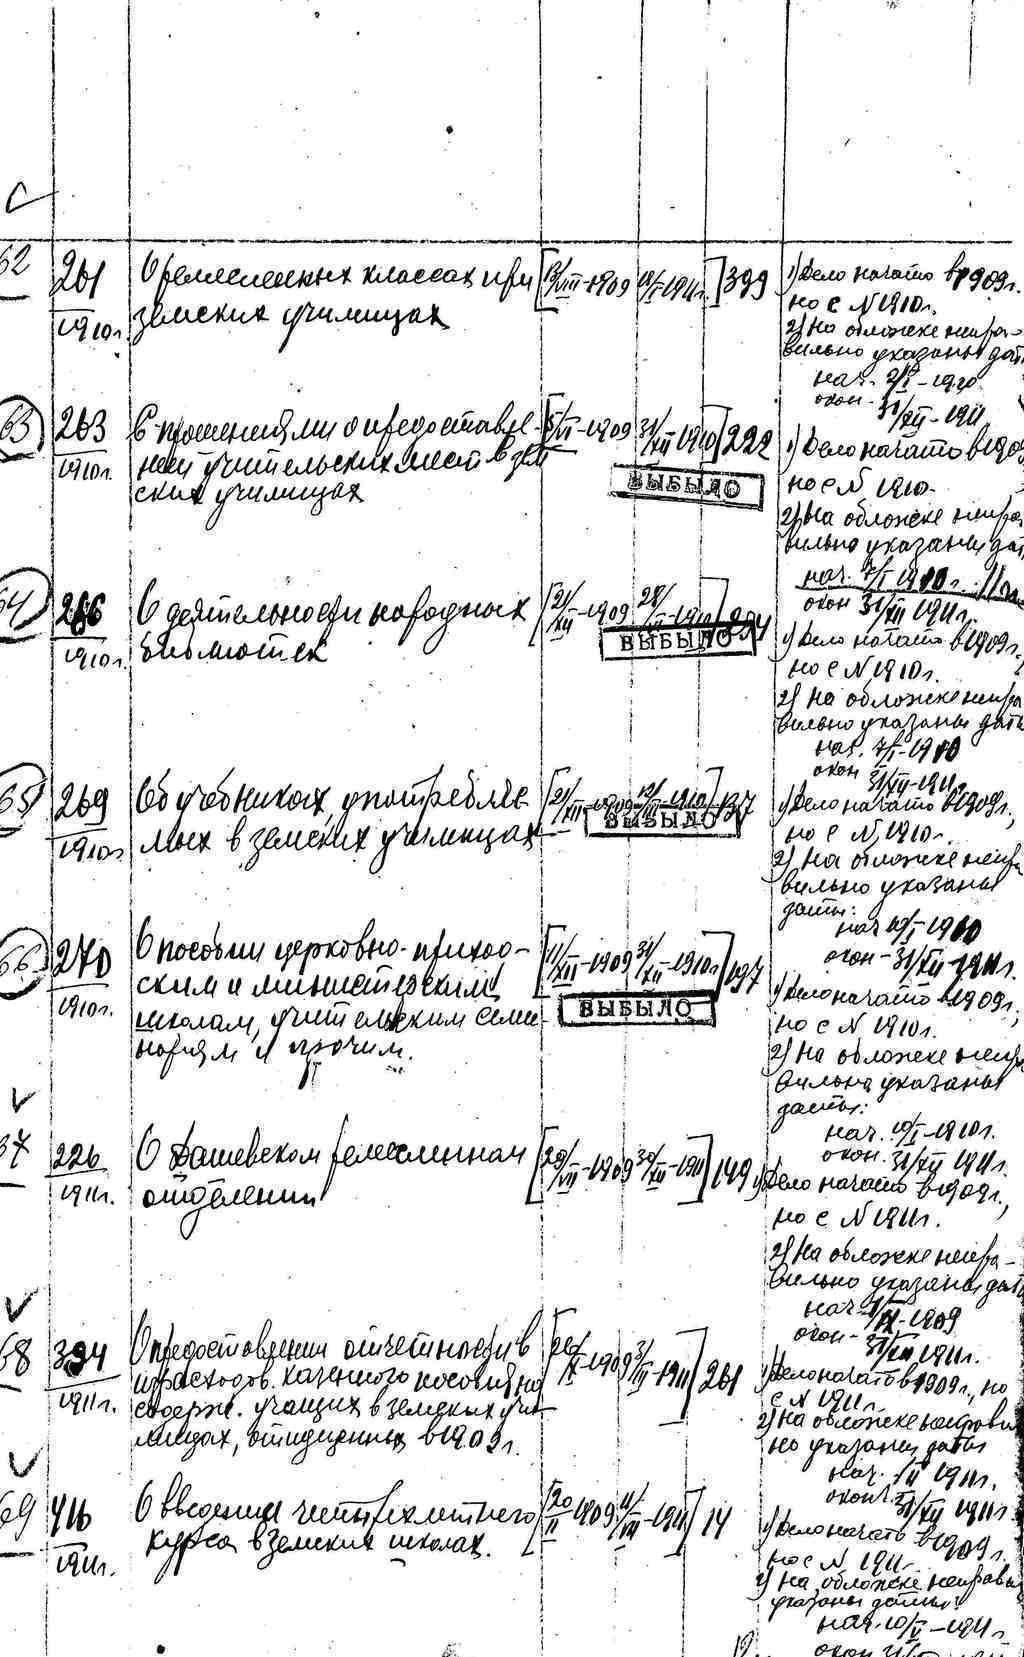 62
261
1910г.
О ремесленных классах при
земских училищах
399
1) Дело начато в 1909г.
но с N 1910г.
2) На обложке непра-
вильно указаны дат
нач.
окон - 31/XII - 1911
63
263
1910г.
С прошениями о предоставле-
нии учительских мест в зем
ских училищах
[5/VI - 1909 31/XII 1910] 222
ВЫБЫЛО
1) Дело начато в 1909
но с N 1910
2) На обложке непра
вильно указаны дат
нач. 7/I 1910г.
окон 31/XII 1911г.
64
266
1910г.
О деятельности народных
библиотек
[21/XII - 1909
ВЫБЫЛО
1) Дело начато в 1909г.
но с N 1910г.
2) На обложке непра
вильно указаны даты
нач. 7/I - 1910
окон 31/XII - 1911
65
269
1910г.
Об учебниках, употребляе-
мых в земских училищах
[21/XII - 1909 137
ВЫБЫЛО
1) Дело начато в 1909г.,
но с N 1910г.
2) На обложке непра
вильно указаны
даты:
нач 10/I - 1910
окон - 31/XII - 1911г.
66
270
1910г.
О пособии церковно-приход-
ским и министерским
школам, учительским семи-
нариям и прочим.
[11/XII - 1909 31/XII - 1910г.] 197
ВЫБЫЛО
1) Дело начато в 1909г.,
но с N 1910г.
2) На обложке непра
вильно указаны
даты:
нач. 10/I - 1910г.
окон. 31/XII 1911г.
67
226
1911г.
О Дашевском ремесленном
отделении
[29/VII - 1909 30/XII - 1911] 149
1) Дело начато в 1909г.,
но с N 1911г.
2) На обложке непра-
вильно указаны дат
нач
окон - 31/XII 1911г.
68
394
1911г.
О предоставлении отчетности в
израсходов. казенного пособия на
содерж. учащих в земских учи-
лищах, открытых в 1909г.
[26/X - 1909 31/XII - 1911] 261
1) Дело начато в 1909г., но
с N 1911г.
2) На обложке неправиль
но указаны даты
нач. 1911г.
окон. 31/XII 1911г.
69
416
1911г.
О введении четырехлетнего
курса в земских школах.
[20/II 1909 11/VII - 1911] 14
1) Дело начато в 1909г.
но с N 1911г.
2) На обложке неправиль
указаны даты:
нач. 10/V - 1911г.
окон